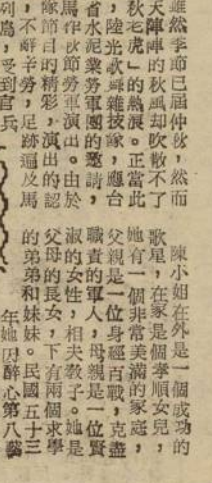 雖然季節已屆仲秋,然而
天陣陣的秋風却吹散不了
秋老虎」的熱浪。正當此
,陸光歌舞雜技隊,應台
省水泥業勞軍團的邀請,
馬作秋節勞軍演出。由於
隊節目的精彩,演出的認
,不辭辛勞,足跡遍及馬
列島,受到官兵
陳小姐在外是一個成功的
歌星,在家是個孝順女兒,
她有一個非常美滿的家庭,
父親是一位身經百戰,克盡
職責的軍人,母親是一位賢
淑的女性,相夫教子。她是
父母的長女,下有兩個求學
的弟弟和妹妹。民國五十三
年她因醉心第八藝